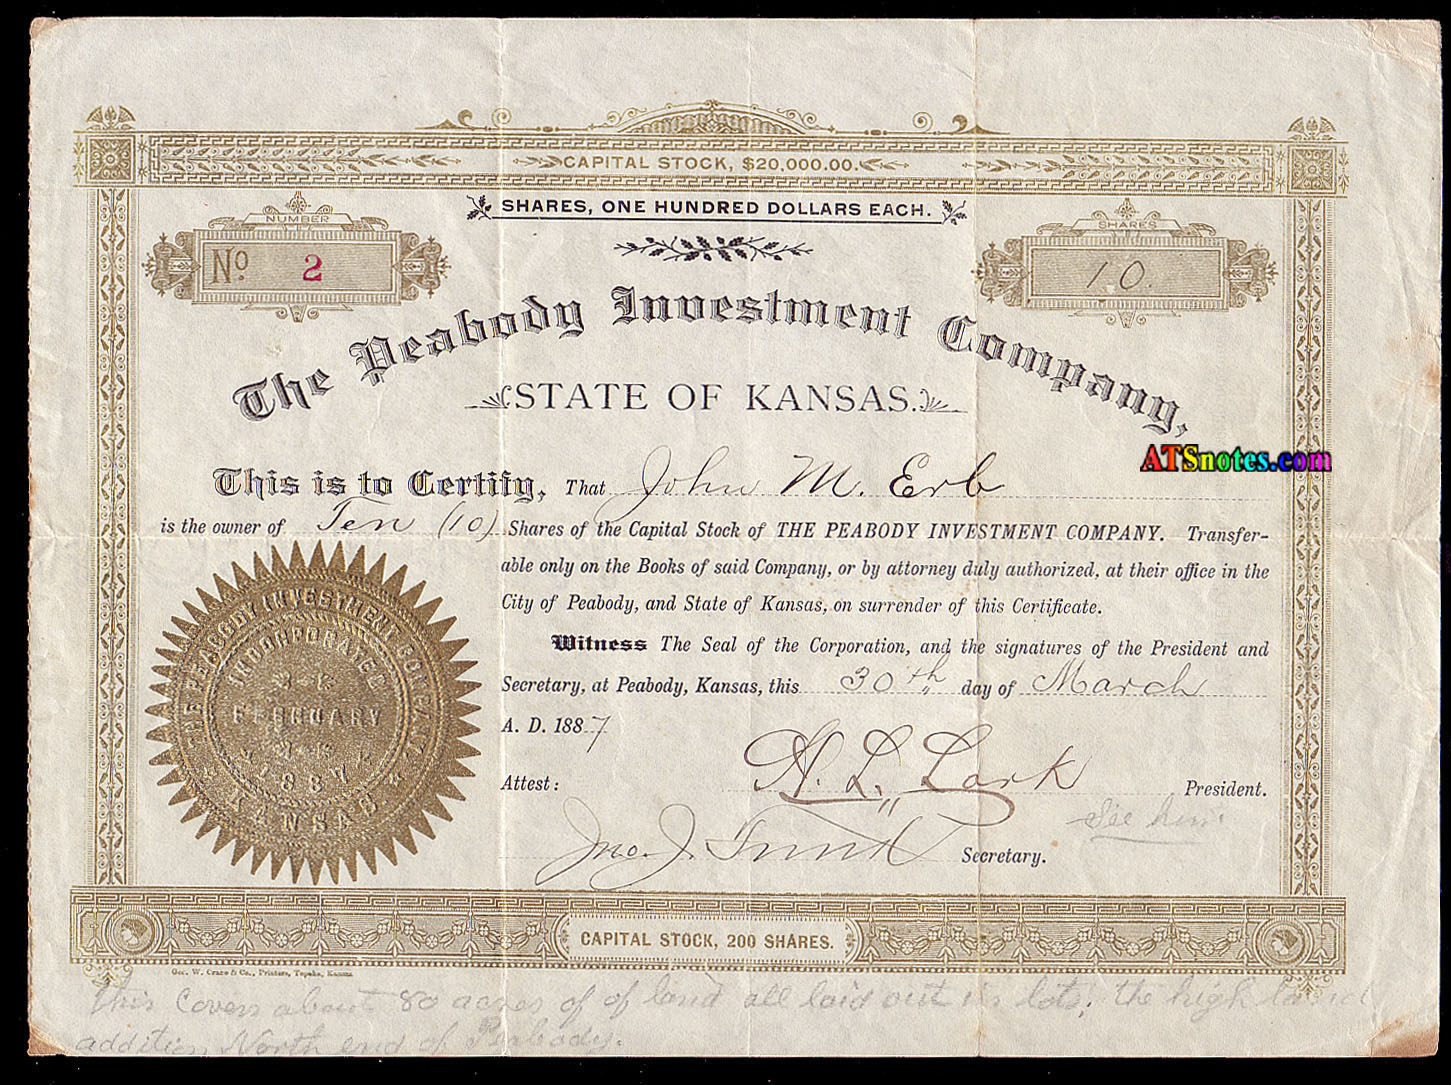 CAPITAL STOCK, $20,000.00.
SHARES, ONE HUNDRED DOLLARS EACH.
NUMBER
No 2
SHARES
10.
The Peabody Investment Company,
STATE OF KANSAS.
ATSnotes.com
This is to Certify, That John M. Erb
is the owner of Ten (10) Shares of the Capital Stock of THE PEABODY INVESTMENT COMPANY. Transfer-
able only on the Books of said Company, or by attorney duly authorized, at their office in the
City of Peabody, and State of Kansas, on surrender of this Certificate.
Witness The Seal of the Corporation, and the signatures of the President and
Secretary, at Peabody, Kansas, this 30th day of March
A. D. 1887
THE PEABODY INVESTMENT COMPANY
INCORPORATED
FEBRUARY
1887
KANSAS.
Attest:
H. L. Lark President.
See him
Jno. J. Funk Secretary.
CAPITAL STOCK, 200 SHARES.
Geo. W. Crane & Co., Printers, Topeka, Kansas
This Covers about 80 acres of of land all laid out in lots; the high land
addition North end of Peabody.